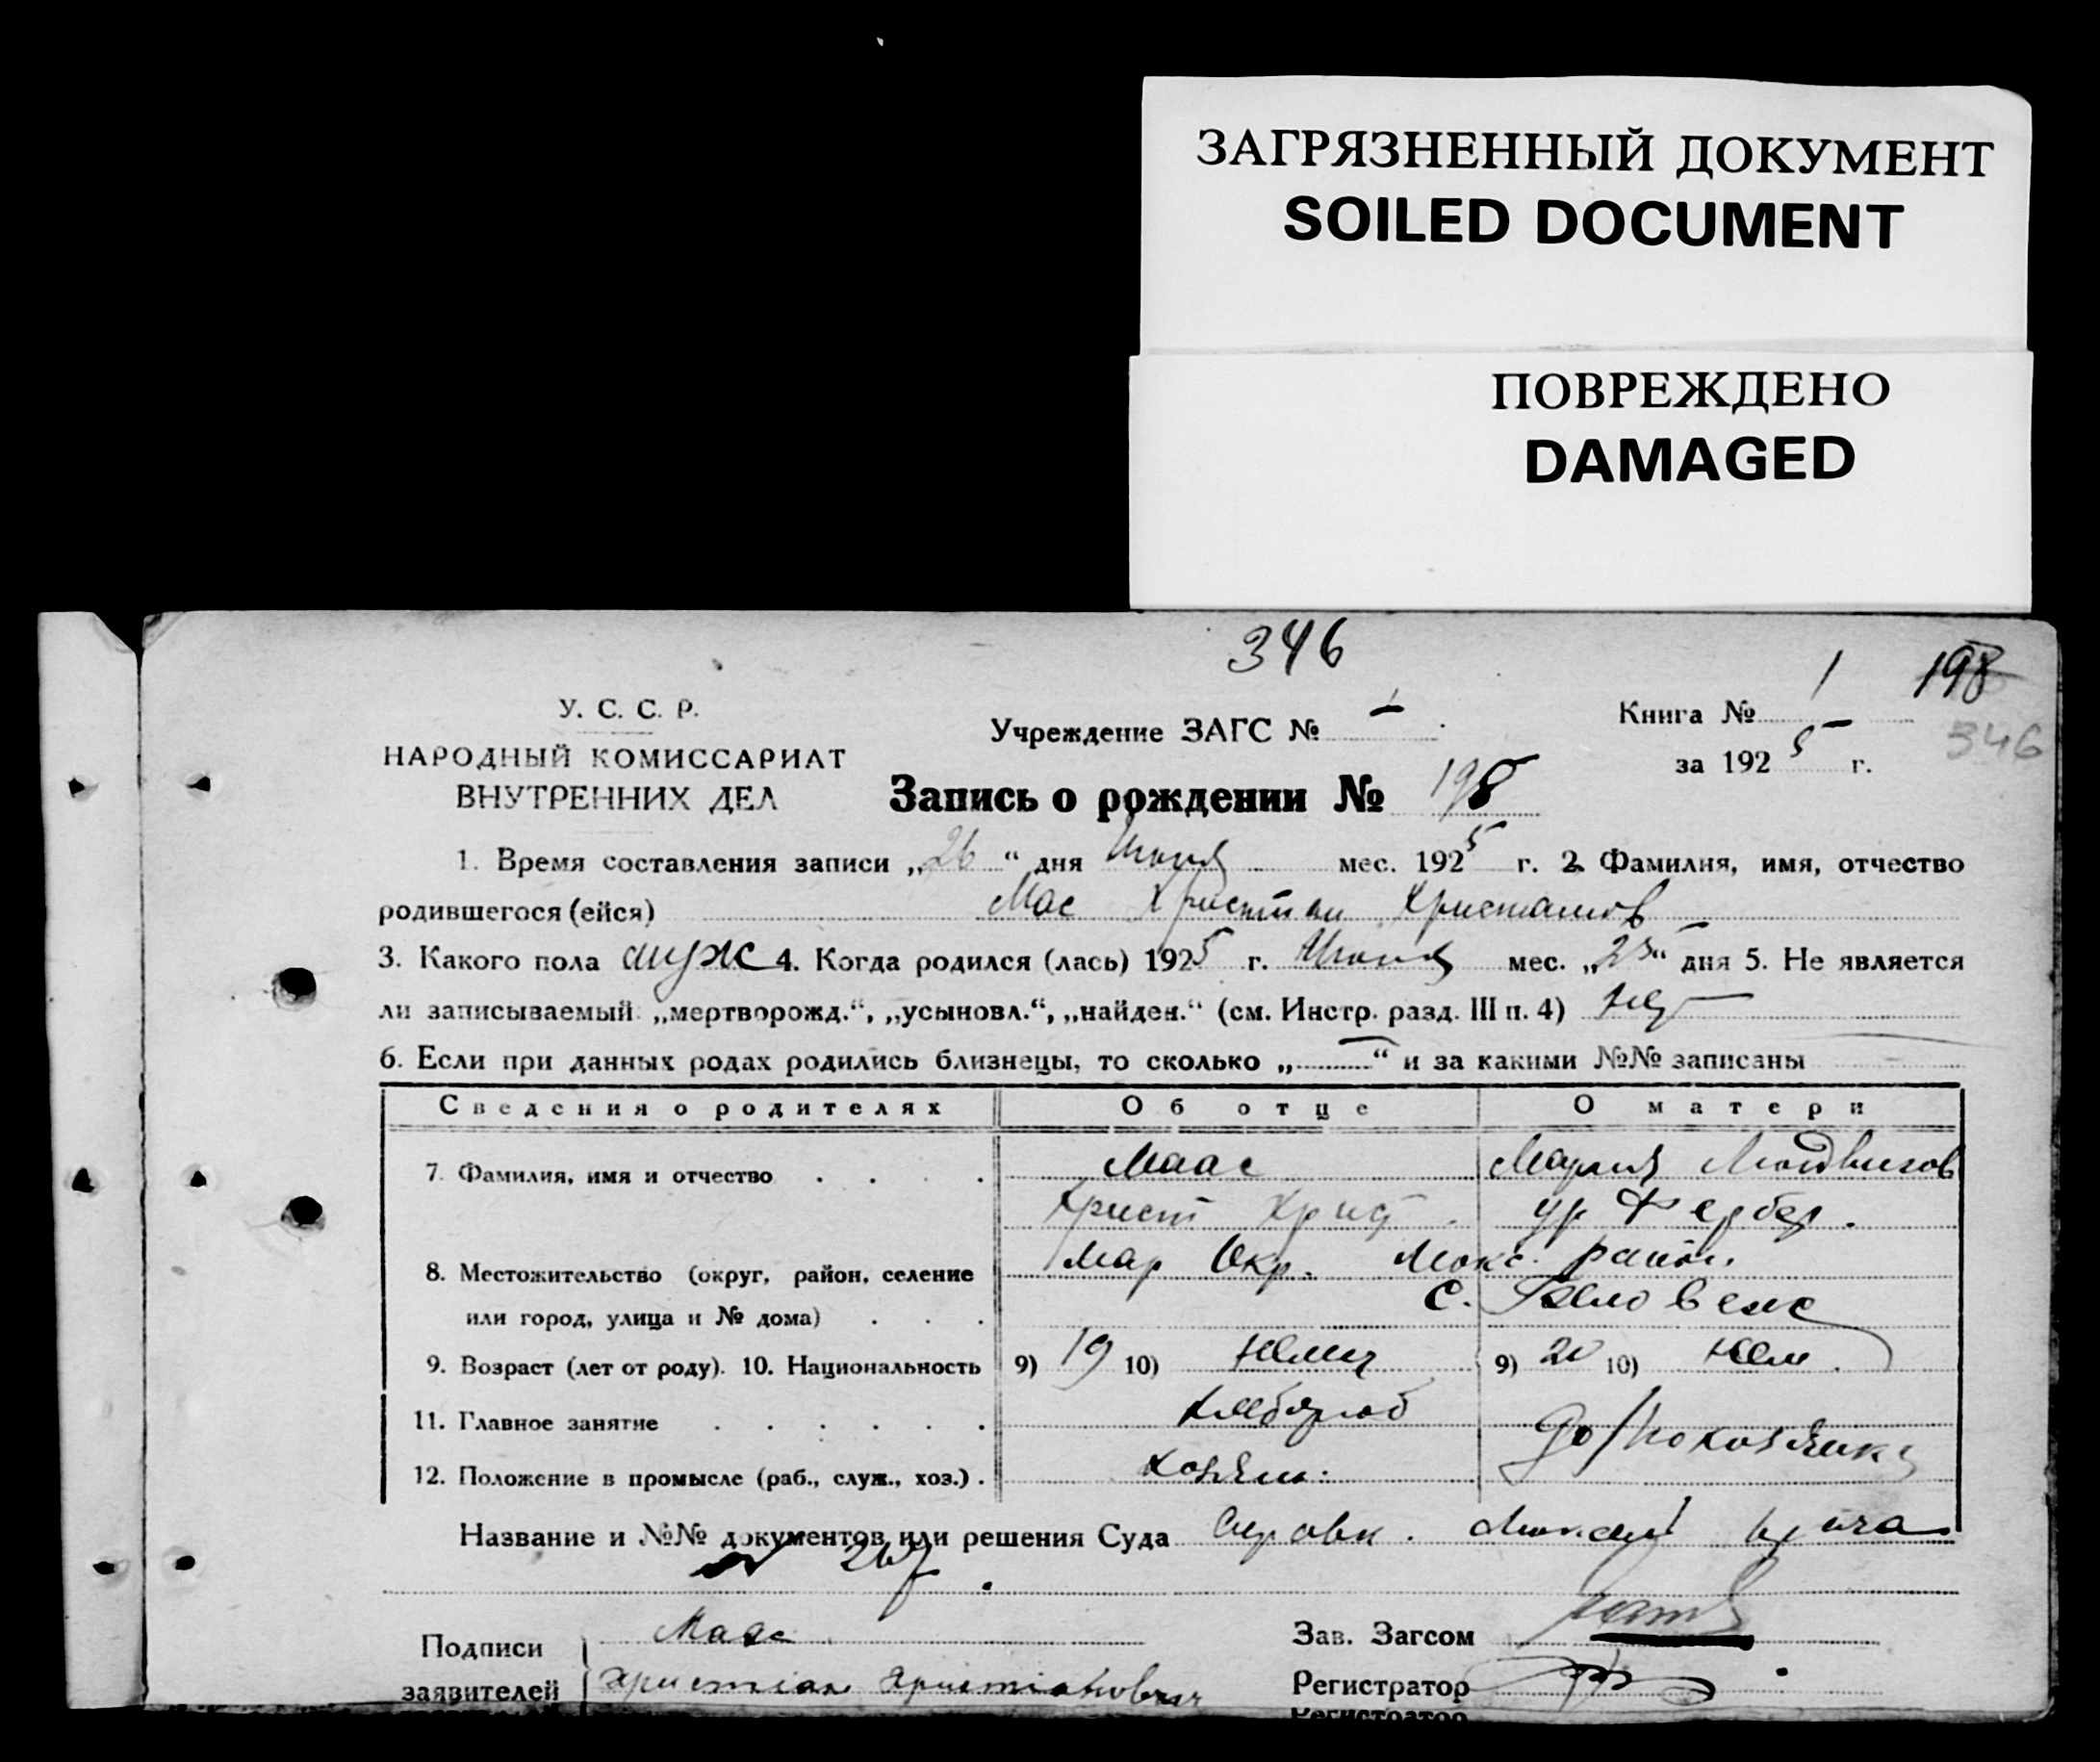 ЗАГРЯЗНЕННЫЙ ДОКУМЕНТ
SOILED DOCUMENT
ПОВРЕЖДЕНО
DAMAGED
346
1 198
У. С. С. Р.
НАРОДНЫЙ КОМИССАРИАТ
ВНУТРЕННИХ ДЕЛ
Учреждение ЗАГС № 1
Книга №
за 1925 г.
346
Запись о рождении № 198
1. Время составления записи „26“ дня Июня мес. 1925 г. 2. Фамилия, имя, отчество
родившегося (ейся) Мас Христиан Христианов
3. Какого пола муж 4. Когда родился (лась) 1925 г. Июня мес. „25“ дня 5. Не является
ли записываемый „мертворожд.“, „усыновл.“, „найден.“ (см. Инстр. разд. III п. 4) нет
6. Если при данных родах родились близнецы, то сколько „—“ и за какими №№ записаны
Сведения о родителях Об отце О матери
7. Фамилия, имя и отчество Маас Мария Людвигов
Христ Христ ур Фербер.
8. Местожительство (округ, район, селение Мар Окр. Люкс. район.
или город, улица и № дома) с.
9. Возраст (лет от роду). 10. Национальность 9) 19 10) Немец 9) 20 10) Нем.
11. Главное занятие хлебороб
12. Положение в промысле (раб., служ., хоз.) хозяин. домохозяйка
Название и №№ документов или решения Суда
Подписи Маас
заявителей Христиан Христианович
Зав. Загсом
Регистратор
Регистратор